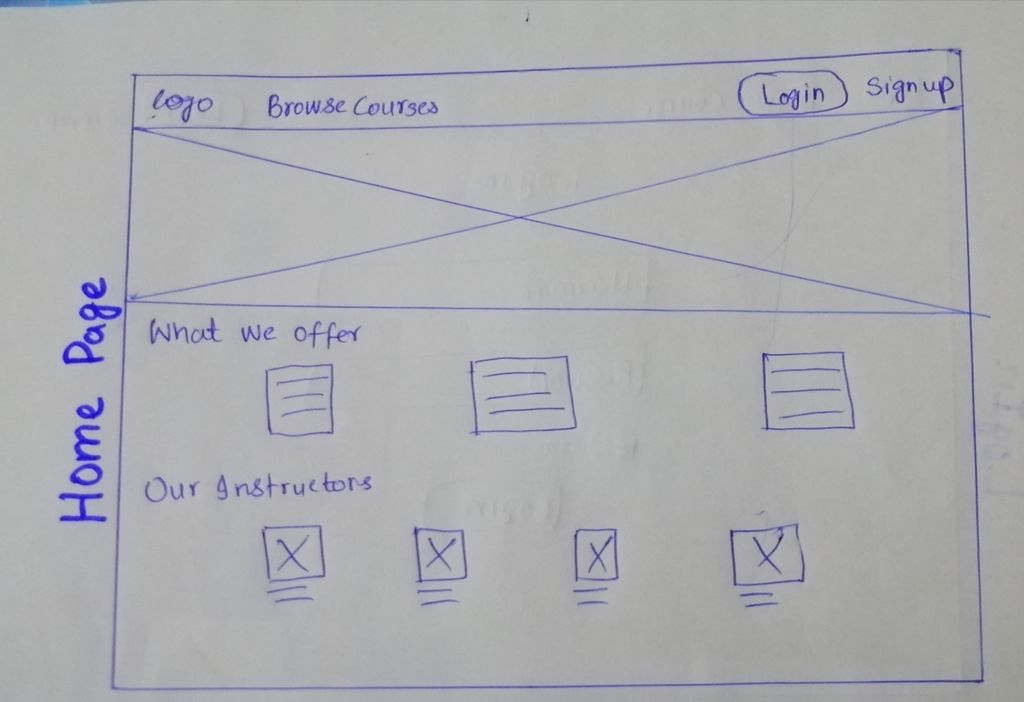 logo Browse Courses Login Sign up
What we offer
Our Instructors
Home Page